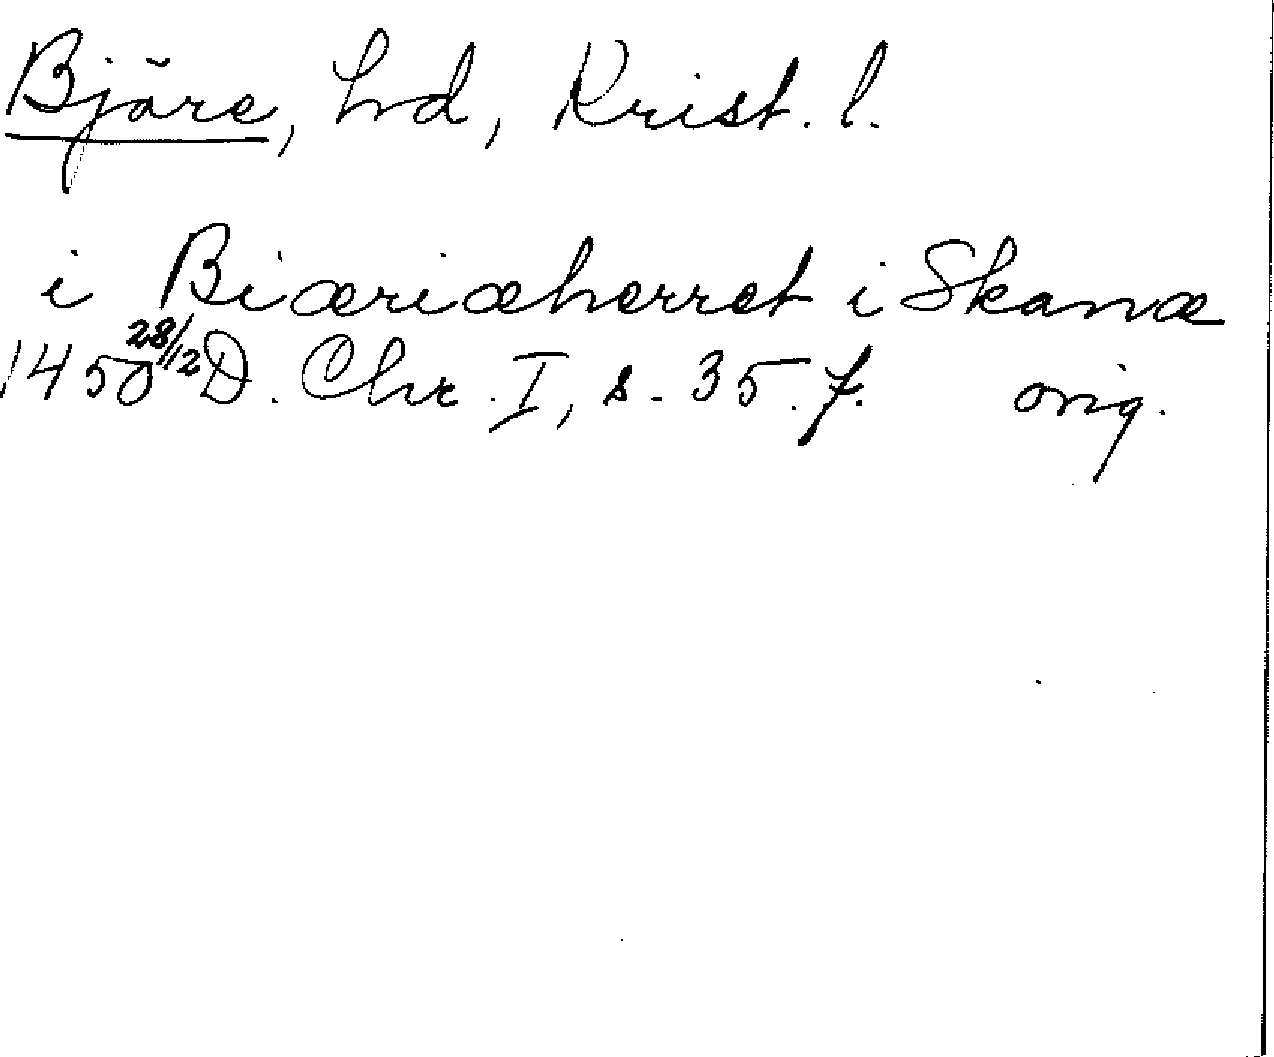 Bjäre, hd, Krist. l.
i Biæriæherret i Skanæ
1450 28/12 D. Chr. I, s. 35 f. orig.